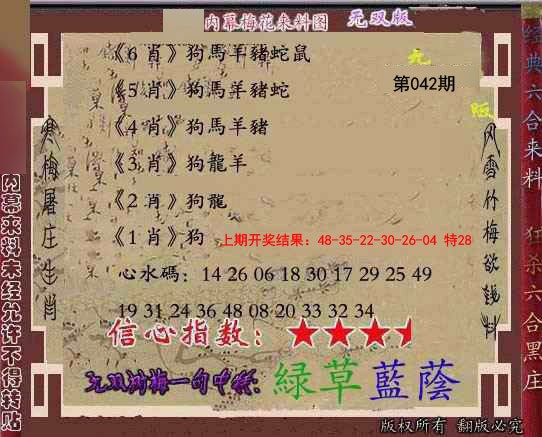 内幕梅花来料图 无双版
《6 肖》狗馬羊豬蛇鼠
《5 肖》狗馬羊豬蛇
第042期
《4 肖》狗馬羊豬
《3 肖》狗龍羊
《2 肖》狗龍
《1 肖》狗
上期开奖结果：48-35-22-30-26-04 特28
心水碼：14 26 06 18 30 17 29 25 49
19 31 24 36 48 08 20 33 32 34
信心指数：
緑草藍蔭
版权所有 翻版必究
寒梅屠庄生肖
内幕来料未经允许不得转贴
风雪竹梅欲钱料
经典六合来料
狂杀六合黑庄